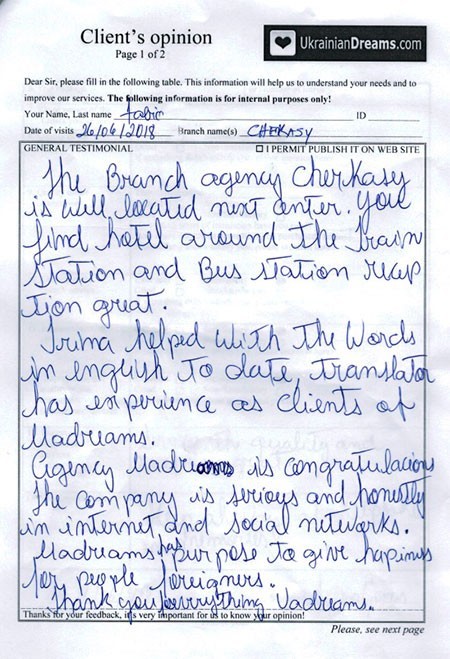 Client's opinion
Page 1 of 2
UkrainianDreams.com
Dear Sir, please fill in the following table. This information will help us to understand your needs and to
improve our services. The following information is for internal purposes only!
Your Name, Last name fabio ID
Date of visits 26/06/2018 Branch name(s) CHEKASY
GENERAL TESTIMONIAL ☐ I PERMIT PUBLISH IT ON WEB SITE
The Branch agency Cherkasy
is will located next center. You
find hotel around the train
station and Bus station recep
tion great.
Irina helped with the words
in english to date, translator
has experience as clients of
Uadreams.
Agency Uadreams is congratulacions
the company is serious and honestly
in internet and social networks.
Uadreams has purpose to give hapiness
for people foreigners.
Thank you for everything Uadreams.
Thanks for your feedback, it's very important for us to know your opinion!
Please, see next page